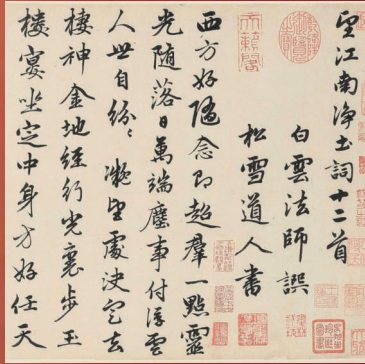 望江南净土詞十二首
白雲法師譔
松雪道人書
西方好随念即超羣一點靈
光随落日萬端塵事付浮雲
人世自紛〻凝望處決定去
棲神金地經行光裏步玉
樓宴坐定中身方好任天